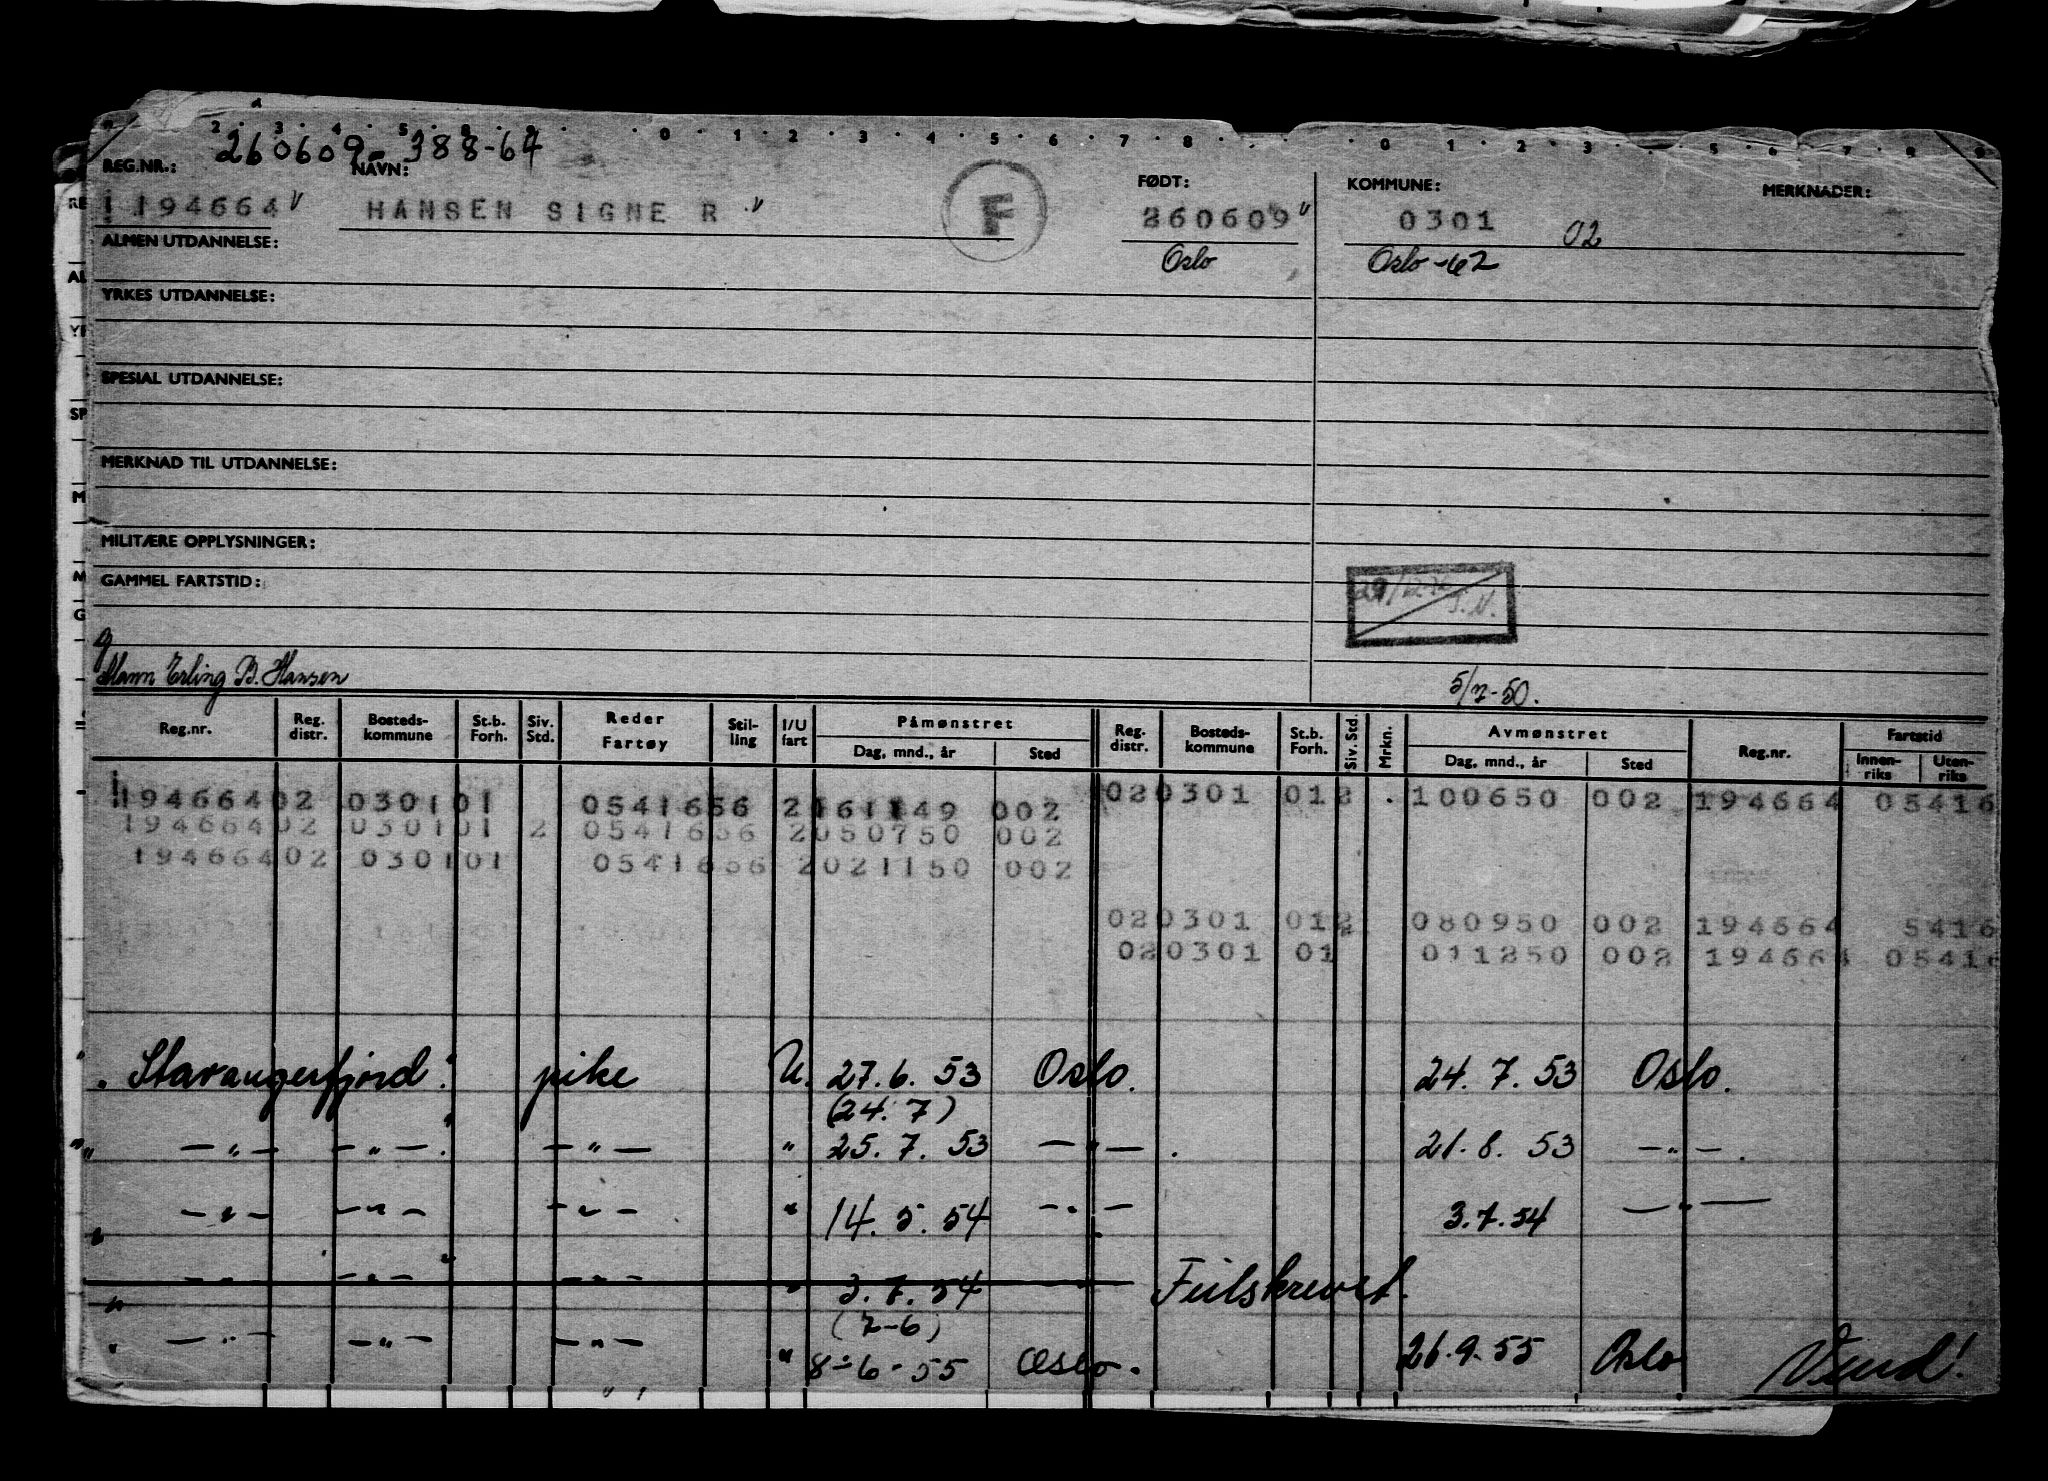 260609-38864
REG.NR.: NAVN: FØDT: KOMMUNE: MERKNADER:
194664 HANSEN SIGNE R F 260609 0301 02
ALMEN UTDANNELSE: Oslo Oslo -62
YRKES UTDANNELSE:
SPESIAL UTDANNELSE:
MERKNAD TIL UTDANNELSE:
MILITÆRE OPPLYSNINGER:
GAMMEL FARTSTID:
Mann Erling B. Hansen 5/7-50.
Reg.nr. Reg. distr. Bosteds-kommune St.b. Forh. Siv. Std. Reder Fartøy Stil-ling I/U fart Påmønstret Dag, mnd., år Sted Reg. distr. Bosteds-kommune St.b. Forh. Siv. Std. Mrkn. Avmønstret Dag, mnd., år Sted Reg.nr. Fartstid Innen-riks Uten-riks
19466402 030101 0541656 2161149 002 020301 012 100650 002 194664 05416
19466402 030101 2 0541656 2050750 002
19466402 030101 0541656 2021150 002
020301 012 080950 002 194664 5416
020301 01 011250 002 194664 05416
Stavangerfjord pike U. 27.6.53 Oslo. 24.7.53 Oslo.
(24.7)
—"— —"— —"— " 25.7.53 —"— 21.8.53 —"—
—"— —"— —"— " 14.5.54 —"— 3.7.54 —"—
—"— —"— —"— " 3.7.54 Feilskrevet.
(7-6)
—"— —"— —"— " 8-6-55 Oslo. 26.9.55 Oslo Vend!